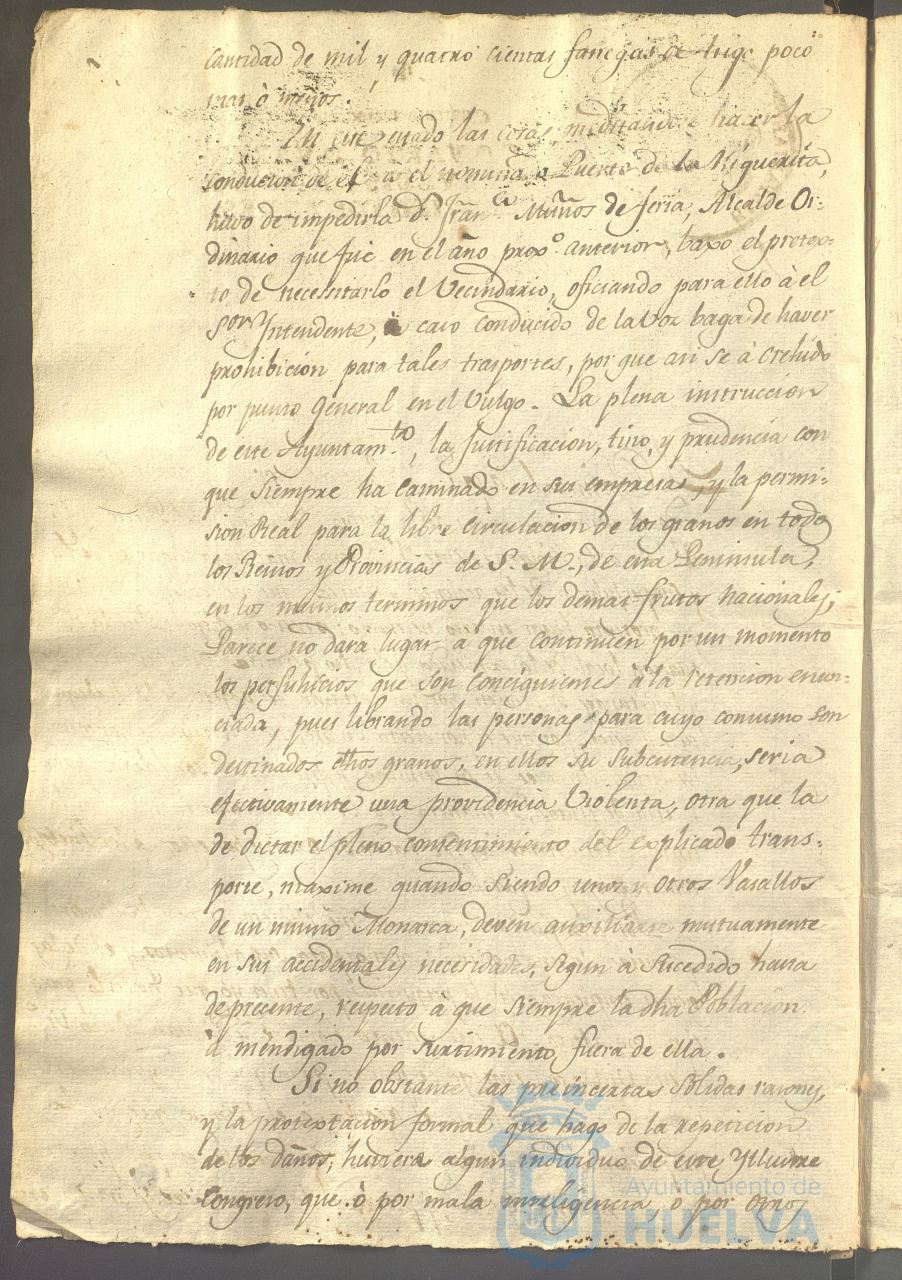 cantidad de mil y quatro cientas fanegas de trigo poco
mas ò menos.
En este estado las cosas, meditando hacer la
conducion de el à el nomina Puerto de la Higuerita,
huvo de impedirla Dn. Franco. Muños de feria, Alcalde Or-
dinario que fue en el año proxo. anterior, baxo el pretex-
to de necesitarlo el Vecindario, oficiando para ello à el
Sor. Yntendente, ò caso conducido de la voz baga de haver
prohibicion para tales trasportes, por que asi se à crehido
por punto General en el Vulgo. La plena instruccion
de este Ayuntamto., la justificacion, tino, y prudencia con
que siempre ha caminado en sus empresas, y la permi-
sion Real para la libre circulacion de los granos en todos
los Reinos y Provincias de S. M., de esta Peninsula,
en los mismos terminos que los demas frutos nacionales;
Parece no dará lugar à que continuen por un momento
los perjuhicios que son consiguientes à la retencion enun-
ciada, pues librando las personas para cuyo consumo son
destinados dhos granos, en ellos su subcistencia, seria
efectivamente una providencia violenta, otra que la
de dictar el pleno consentimiento del explicado trans-
porte, maxime quando siendo unos y otros Vasallos
de un mismo Monarca, deven auxiliarse mutuamente
en sus accidentales necesidades, segun à sucedido hasta
de presente, respecto à que siempre la dha Poblacion
à mendigado por surtimiento fuera de ella.
Si no obstante las preincertas solidas razones,
y la protextacion formal que hago de la repeticion
de los daños, huviera algun individuo de este Yllustre
Congreso, que ò por mala inteligencia ò por otros
Ayuntamiento de
HUELVA